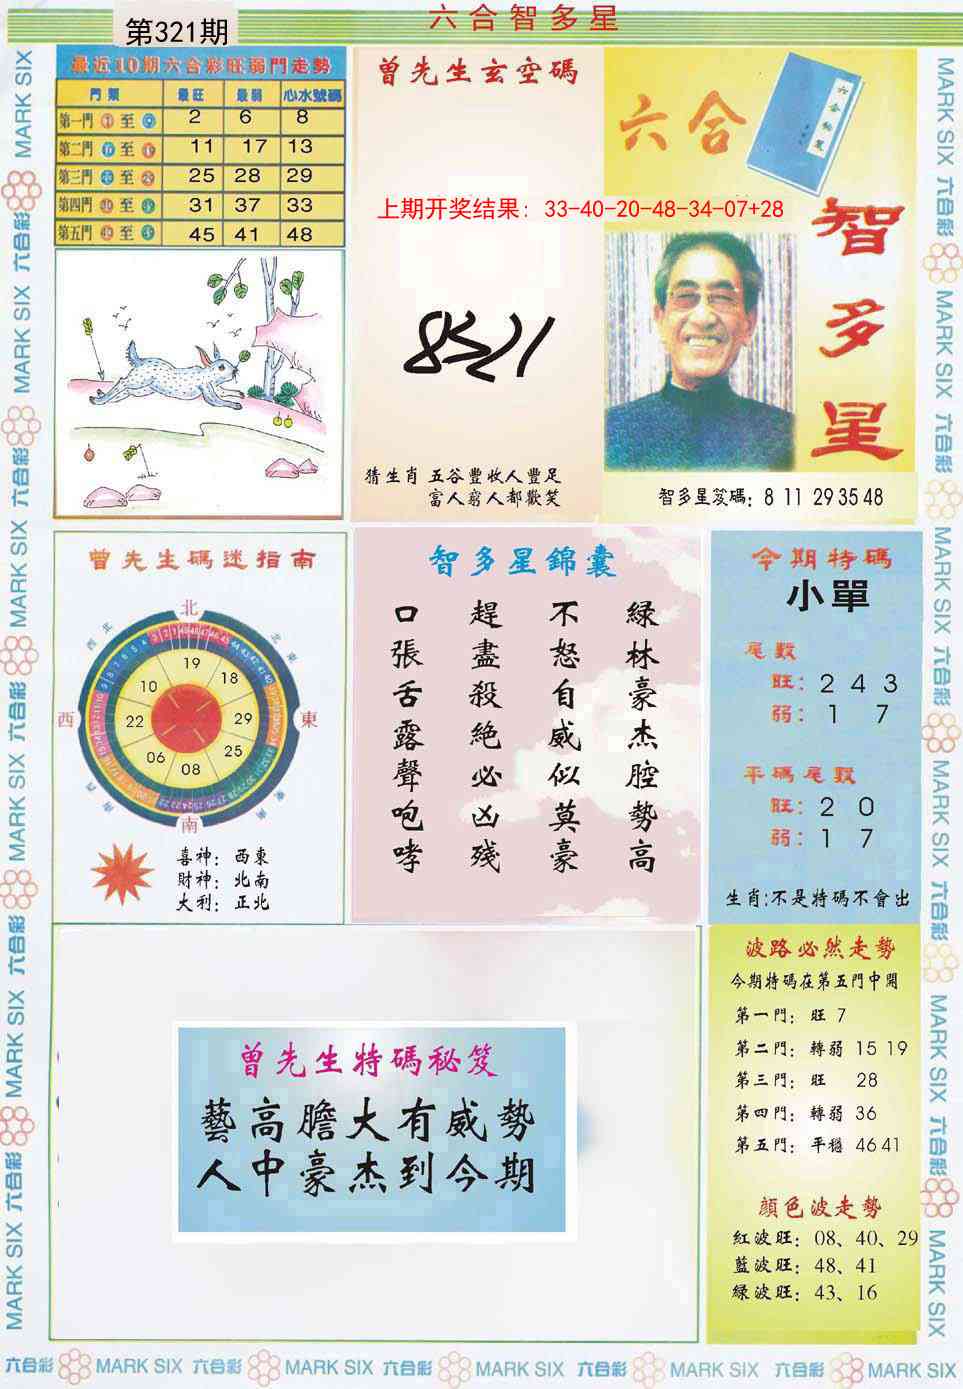 第321期
六合智多星
最近10期六合彩旺弱門走勢
門類 最旺 最弱 心水號碼
第一門 至 2 6 8
第二門 至 11 17 13
第三門 至 25 28 29
第四門 至 31 37 33
第五門 至 45 41 48
曾先生玄空碼
六合
智多星
上期开奖结果：33-40-20-48-34-07+28
猜生肖 五谷豐收人豐足
富人窮人都歡笑
智多星笈碼：8 11 29 35 48
曾先生碼迷指南
北
西北
東北
西
東
南
19
18
29
25
08
06
22
10
喜神：西東
財神：北南
大利：正北
智多星錦囊
綠林豪杰腔勢高
不怒自威似莫豪
趕盡殺絕必凶殘
口張舌露聲咆哮
今期特碼
小單
尾數
旺：2 4 3
弱：1 7
平碼尾數
旺：2 0
弱：1 7
生肖:不是特碼不會出
曾先生特碼秘笈
藝高膽大有威勢
人中豪杰到今期
波路必然走勢
今期特碼在第五門中開
第一門：旺 7
第二門：轉弱 15 19
第三門：旺 28
第四門：轉弱 36
第五門：平穩 46 41
顏色波走勢
紅波旺：08、40、29
藍波旺：48、41
綠波旺：43、16
六合彩 MARK SIX 六合彩 MARK SIX 六合彩 MARK SIX 六合彩 MARK SIX 六合彩 MARK SIX